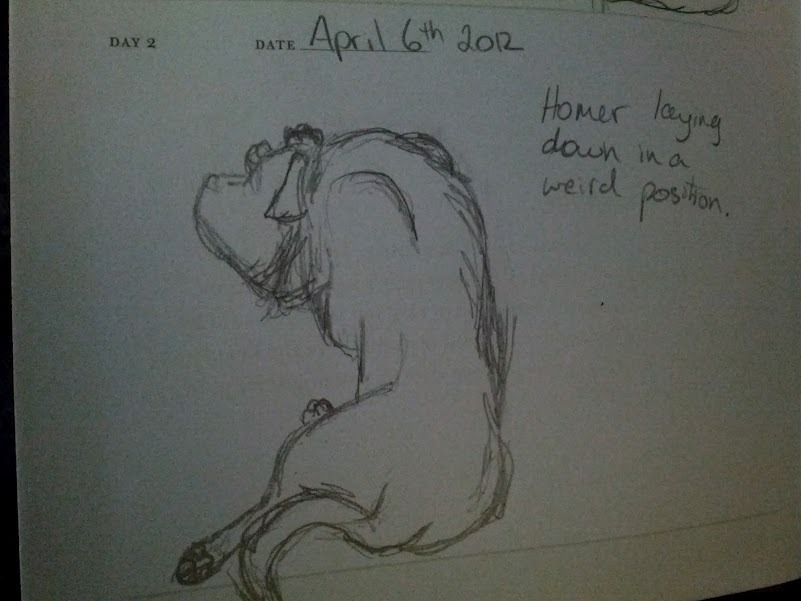 DAY 2 DATE April 6th 2012
Homer laying
down in a
weird position.